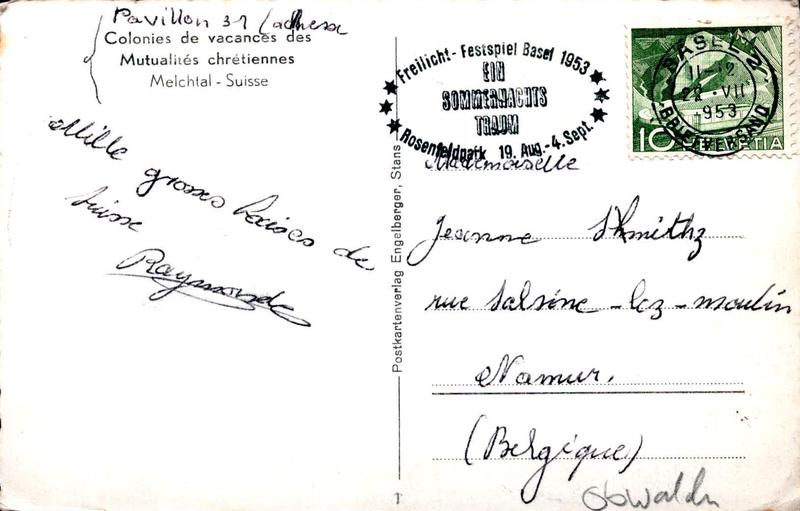 Pavillon 31 (adresse
Colonies de vacances des
Mutualités chrétiennes
Melchtal - Suisse
Mille grosses baises de
Suisse
Raymonde
Postkartenverlag Engelberger, Stans
Freilicht - Festspiel Basel 1953
EIN
SOMMERNACHTS
TRAUM
Rosenfeldpark 19. Aug.-4. Sept.
BASEL 2
11-12
22.VII
1953
BRIEFVERSAND
10 HELVETIA
Mademoiselle
Jeanne Shmithz
rue Salzine-lez-moulin
Namur,
(Belgique)
Obwaldn